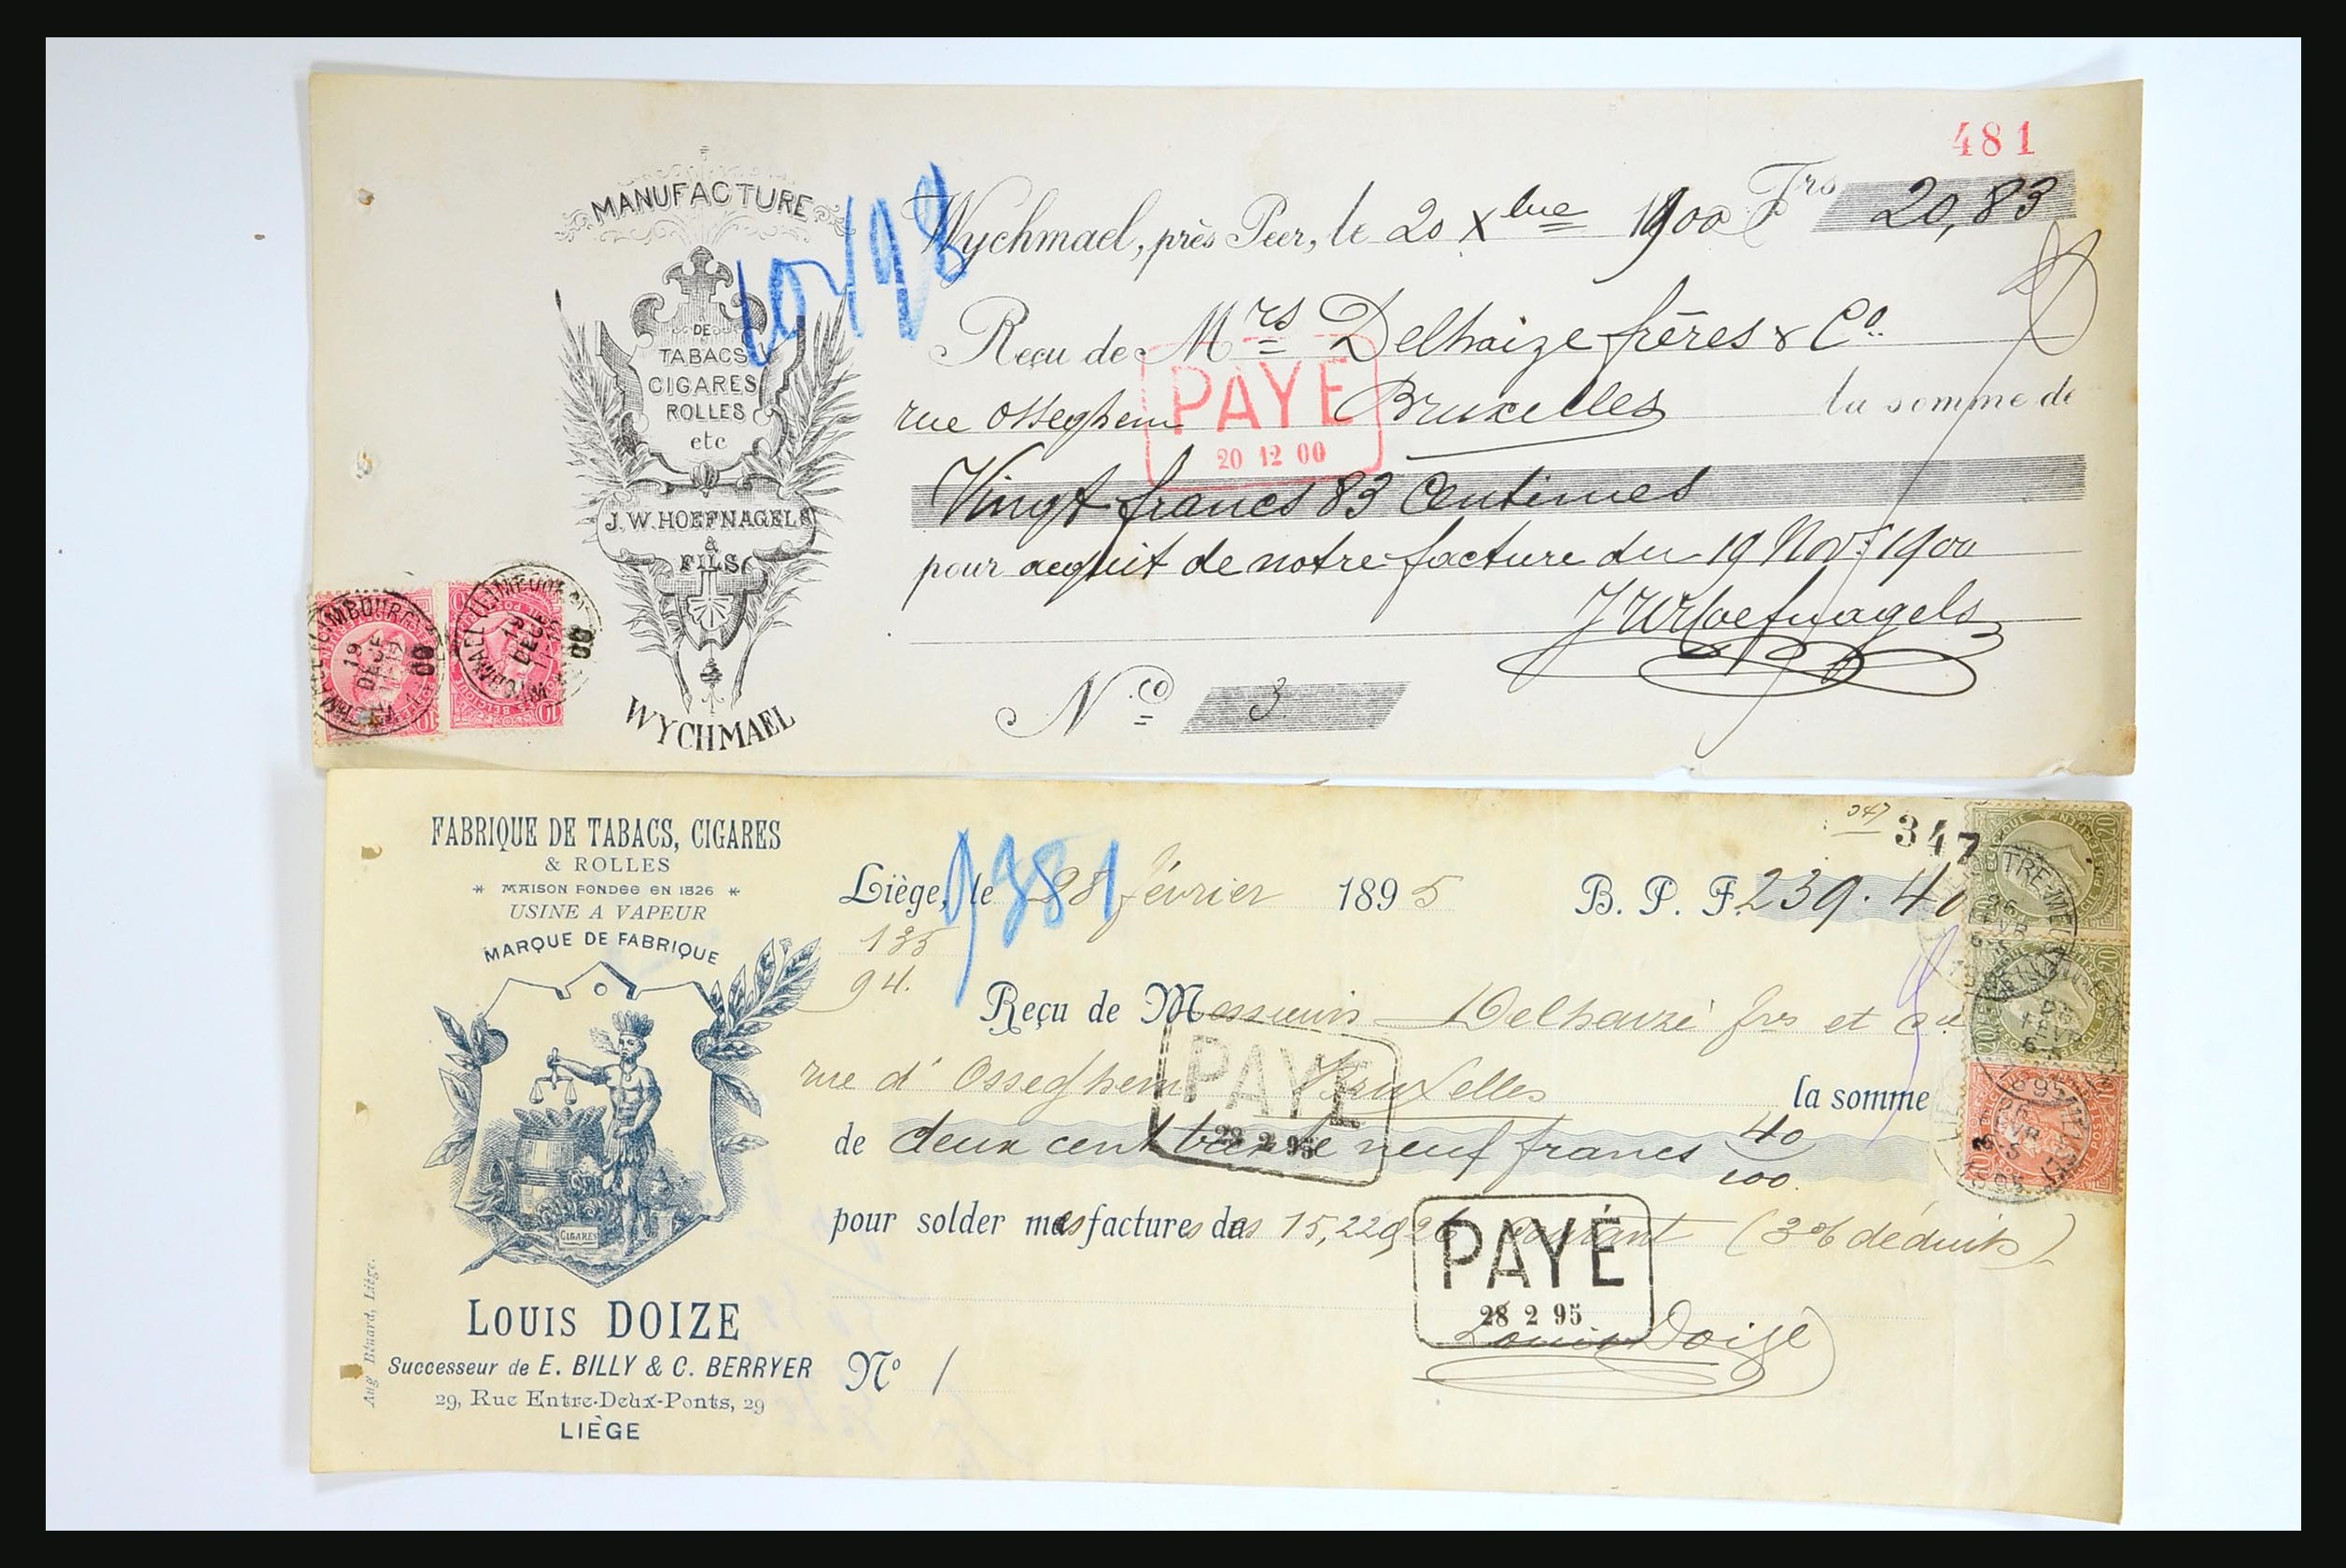 481
MANUFACTURE
DE
TABACS
CIGARES
ROLLES
etc
J. W. HOEFNAGELS
&
FILS
WYCHMAEL
Wychmael, près Peer, le 20 Xbre 1900 Frs 20,83
Reçu de Mrs Delhaize frères & Co.
rue Osseghem Bruxelles la somme de
PAYÉ
20 12 00
Vingt francs 83 Centimes
pour acquit de notre facture du 19 Nov. 1900
J W Hoefnagels
No 3
347
347
FABRIQUE DE TABACS, CIGARES
& ROLLES
* MAISON FONDÉE EN 1826 *
USINE A VAPEUR
MARQUE DE FABRIQUE
CIGARES
LOUIS DOIZE
Successeur de E. BILLY & C. BERRYER
29, Rue Entre-Deux-Ponts, 29
LIÈGE
Aug Bénard, Liège.
Liège, le 28 février 1895 B. P. F. 239.40
135
94.
Reçu de Messieurs Delhaize frs et Cie
rue d'Osseghem Bruxelles la somme
PAYÉ
28 2 95
de deux cent trente neuf francs 40/100
pour solder mes factures des 15, 22 & 26 courant (3% déduits)
PAYÉ
28 2 95
Louis Doize
No 1